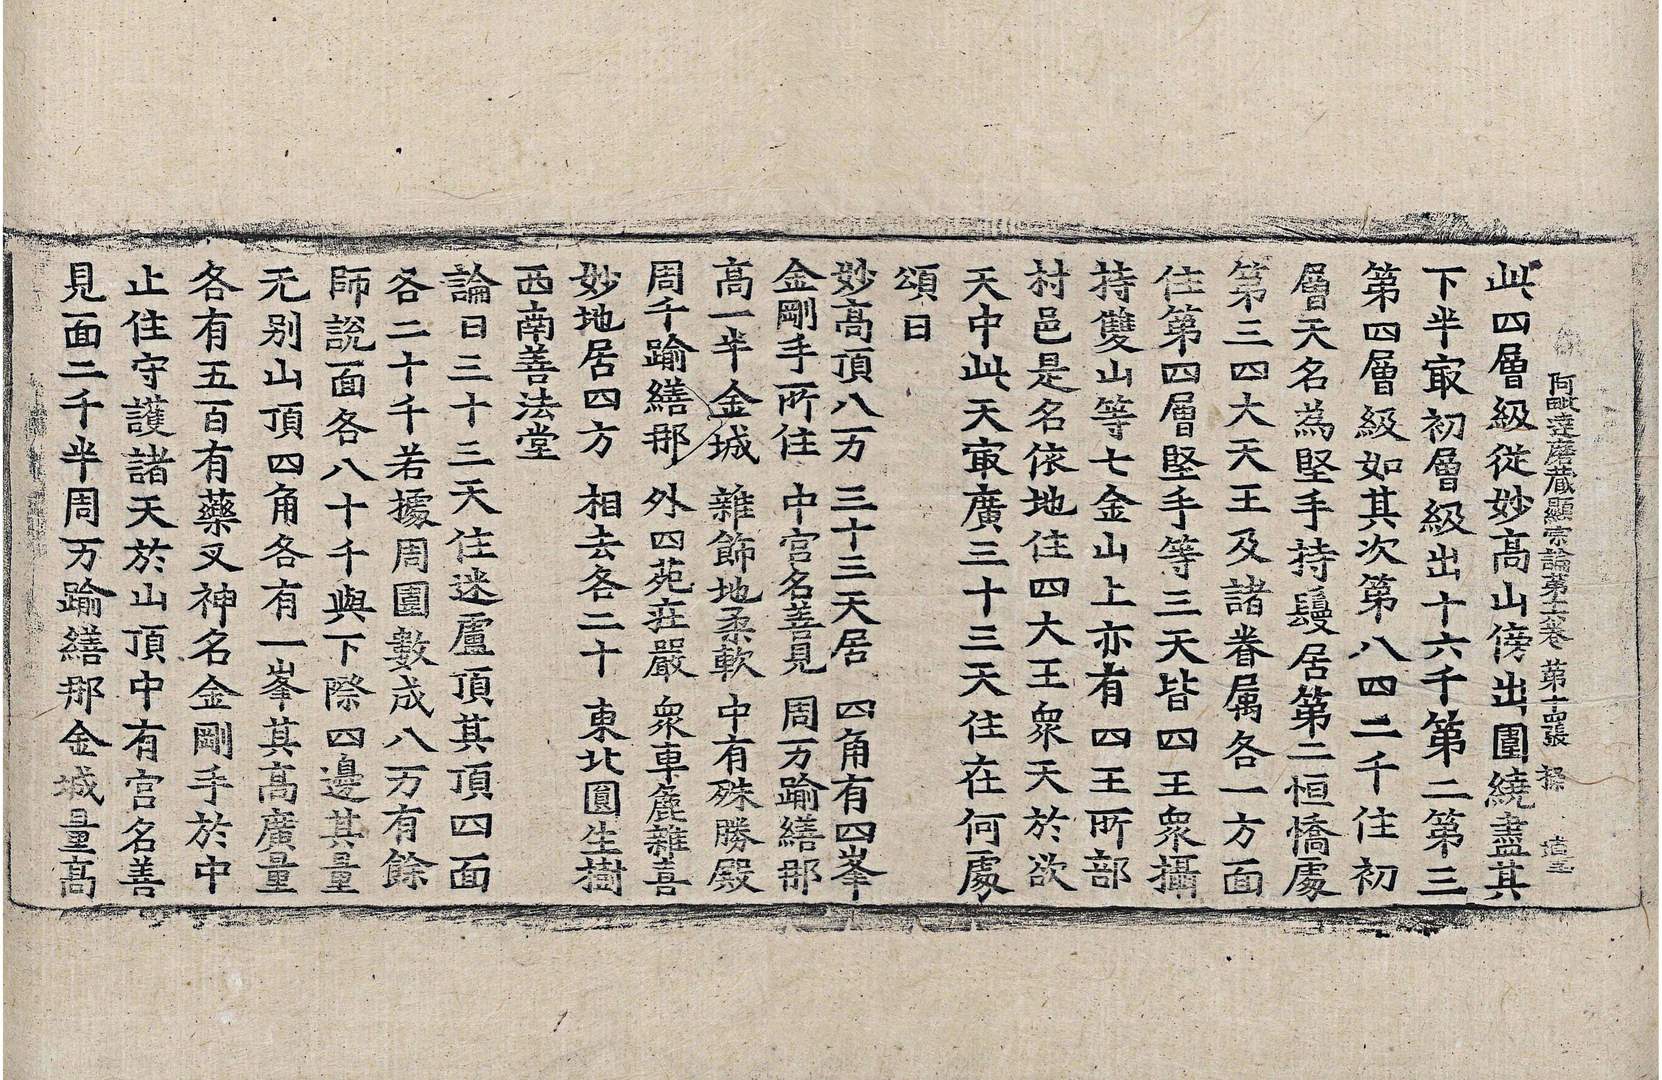 阿毗達磨藏顯宗論第十六卷 第十四張 操
此四層級從妙高山傍出圍繞盡其
下半㝡初層級出十六千第二第三
第四層級如其次第八四二千住初
層天名為堅手持鬘居第二恒憍處
第三四大天王及諸眷属各一方面
住第四層堅手等三天皆四王衆攝
持雙山等七金山上亦有四王所部
村邑是名依地住四大王衆天於欲
天中此天㝡廣三十三天住在何處
頌曰
妙高頂八万 三十三天居 四角有四峯
金剛手所住 中宮名善見 周万踰繕那
高一半金城 雜飾地柔軟 中有殊勝殿
周千踰繕那 外四苑莊嚴 衆車麁雜喜
妙地居四方 相去各二十 東北圓生樹
西南善法堂
論曰三十三天住迷盧頂其頂四面
各二十千若據周圍數成八万有餘
師說面各八十千與下際四邊其量
无别山頂四角各有一峯其高廣量
各有五百有藥叉神名金剛手於中
止住守護諸天於山頂中有宮名善
見面二千半周万踰繕那金城量高